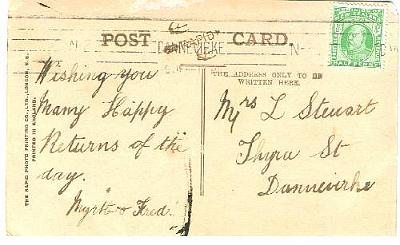 POST CARD.
THE ADDRESS ONLY TO BE
WRITTEN HERE.
THE RAPID PHOTO PRINTING CO., LTD., LONDON, E.C.
PRINTED IN ENGLAND.
Wishing you
Many Happy
Returns of the
day.
Myrtle & Fred.
Mrs L Steuart
Thyra St
Dannevirke
HALF PENNY